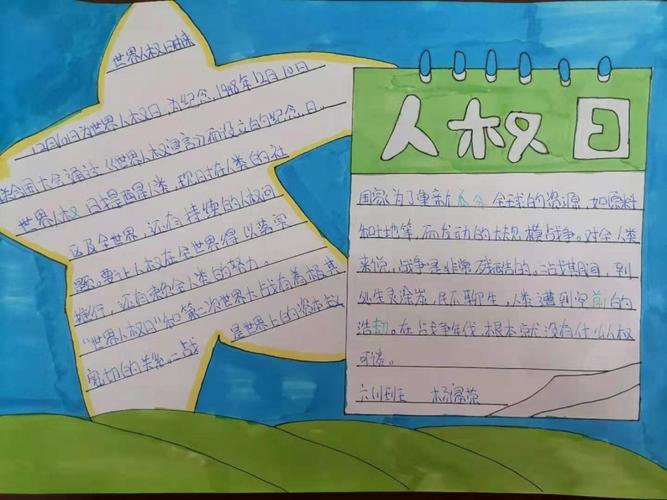 世界人权日由来
12月10日为世界人权日,为纪念,1948年12月10日
合国大会通过《世界人权宣言》而设立的纪念日。
世界人权日提醒人类,现时在人类的社
区及全世界,还有持续的人权问
题。要让人权在全世界得以落实
推行,还有赖于全人类的努力。
"世界人权日"和第二次世界大战有着极其
密切的关系。二战 是世界上的资本主义
人权日
国家为了重新瓜分全球的资源,如原料
和地等,而发动的大规模战争。对全人类
来说,战争是非常残酷的。战期间,到
处生灵涂炭,民不聊生,人类遭到空前的
浩劫。在战争年代根本就没有什么人权
可谈。
六(1)班 杨荣